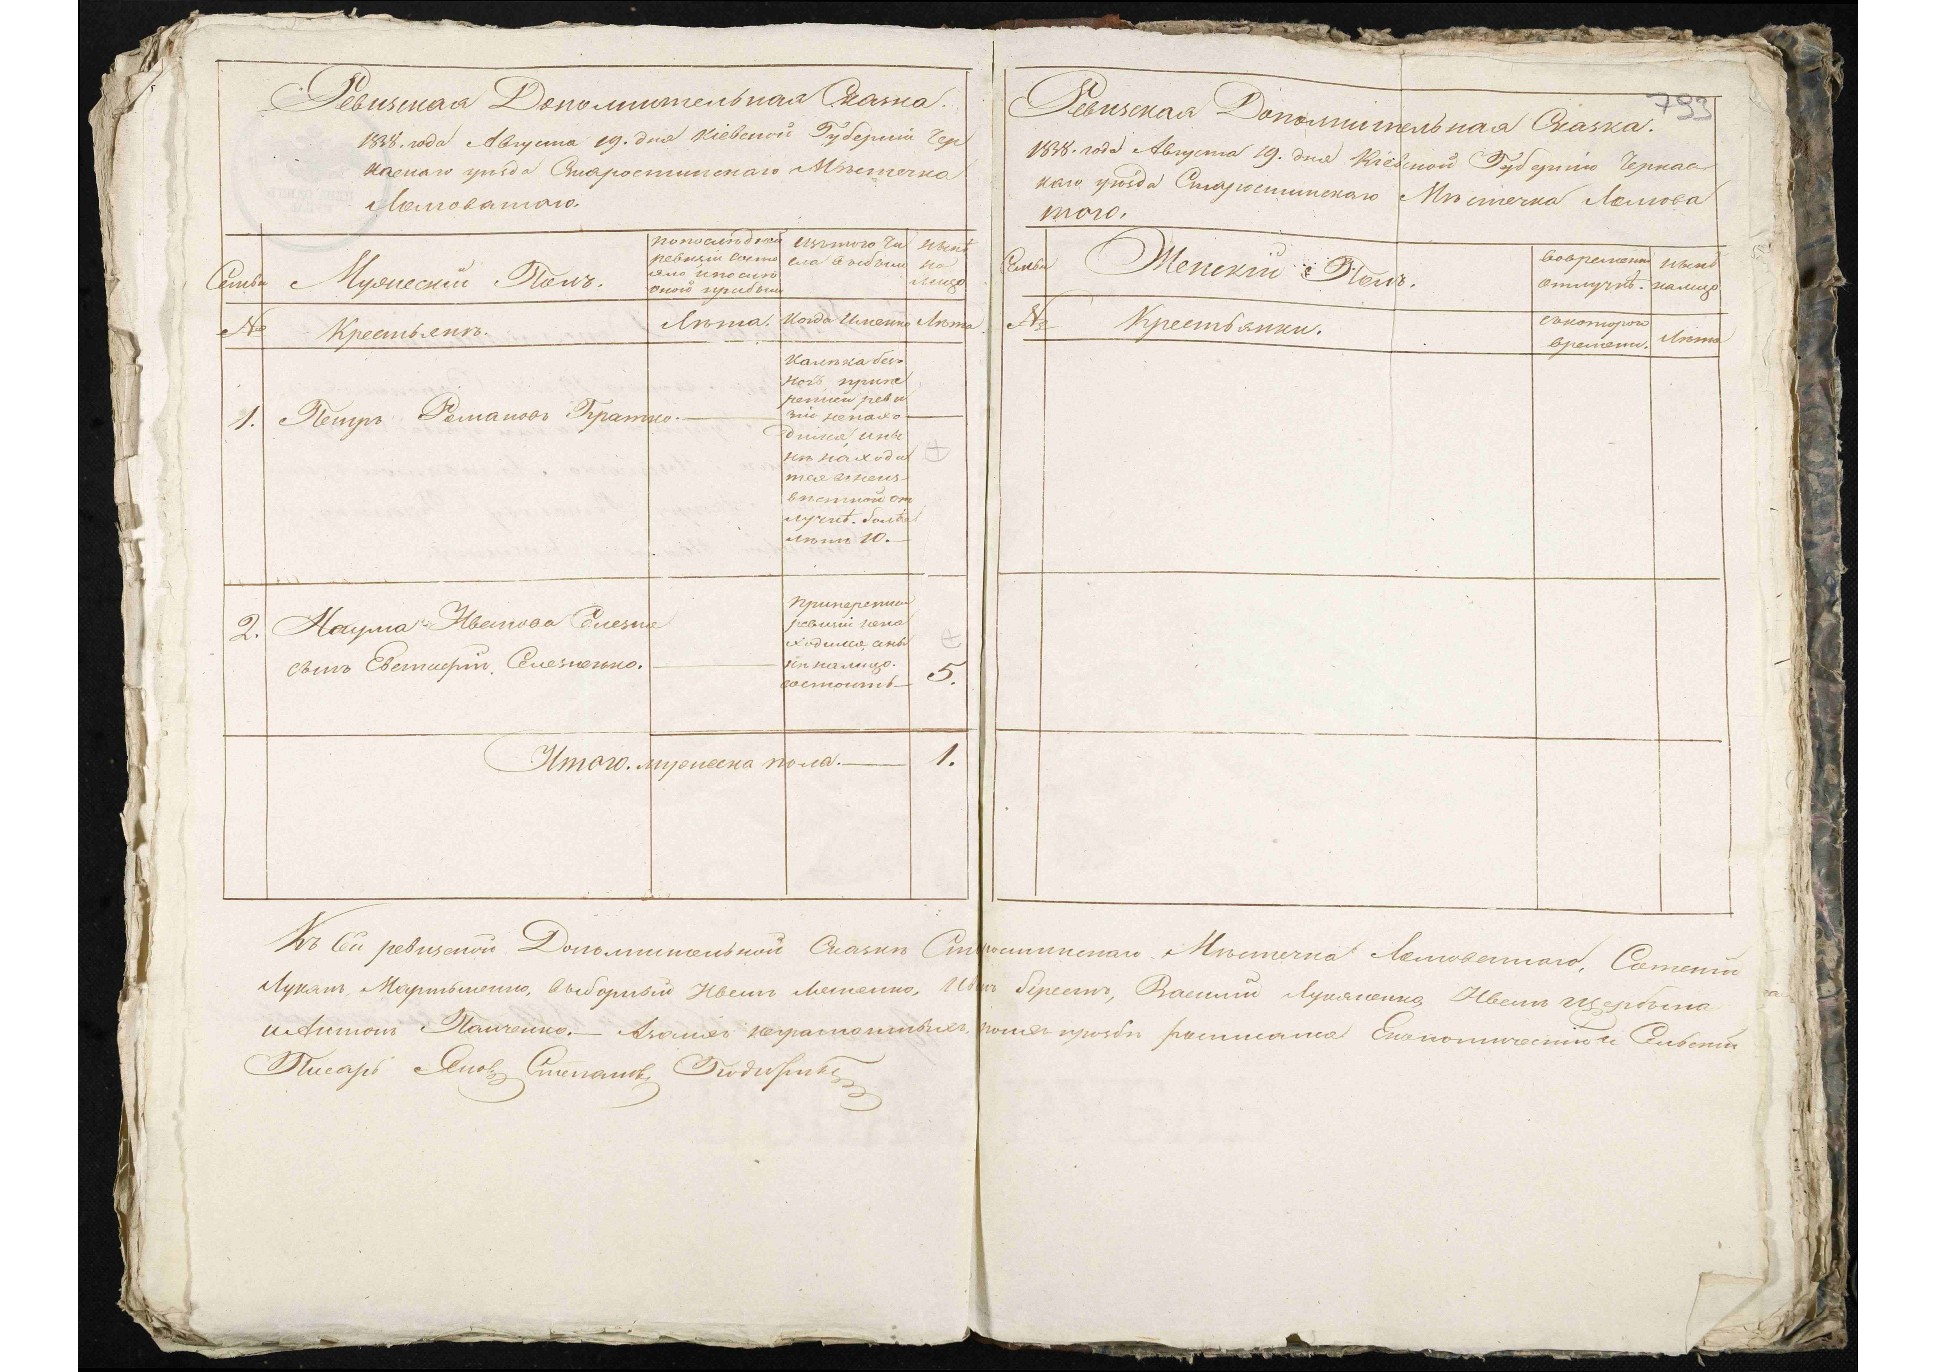 Ревизская Дополнительная Сказка.
1838. года Августа 19. дня Кіевской Губерніи Чер
каскаго уѣзда Староститскаго Мѣстечка
Ломоватого.
Семьи
Мужескій Полъ.
по последней
ревизіи состо
яло и после
оной прибыло
изъ того чи
сла выбыло
нынѣ
на
лицо
№
Крестьянъ.
Лѣта.
Когда Именно
Лѣта
1.
Петръ Романовъ Братко.
Калѣка без
ногъ, припе
реписи реви
зіи не нахо
дился, и ны
нѣ находи
тся в неиз
вестной от
лучкѣ. более
летъ 10.
2.
Наума Иванова Селезня
сынъ Евстафій Селезненко.
При переписи
ревизіи нена
ходился, аны
нѣ налицо.
состоитъ
5.
Итого. мужеска пола.
1.
793
Ревизская Дополнительная Сказка.
1838. года Августа 19. дня Кіевской Губерніи Черкас
каго уѣзда Староститскаго Мѣстечка Ломова
того.
Семьи
Женскій Полъ.
вовременной
отлучкѣ.
нынѣ
налицо
№
Крестьянки.
съкоторого
времени.
Лѣта
Къ сей ревизской Дополнительной Сказкѣ Мѣстечка Ломоватого, Сотскій
Лукьянъ Мартыненко, выборный Иванъ Иванъ берестъ, Василій Лукяненко Иванъ щербина
и Антонъ Панченко. — Азаихъ неграмотныхъ поихъ прозбѣ росписался Економическій и Сельскій
Писарь Яковъ Степановъ